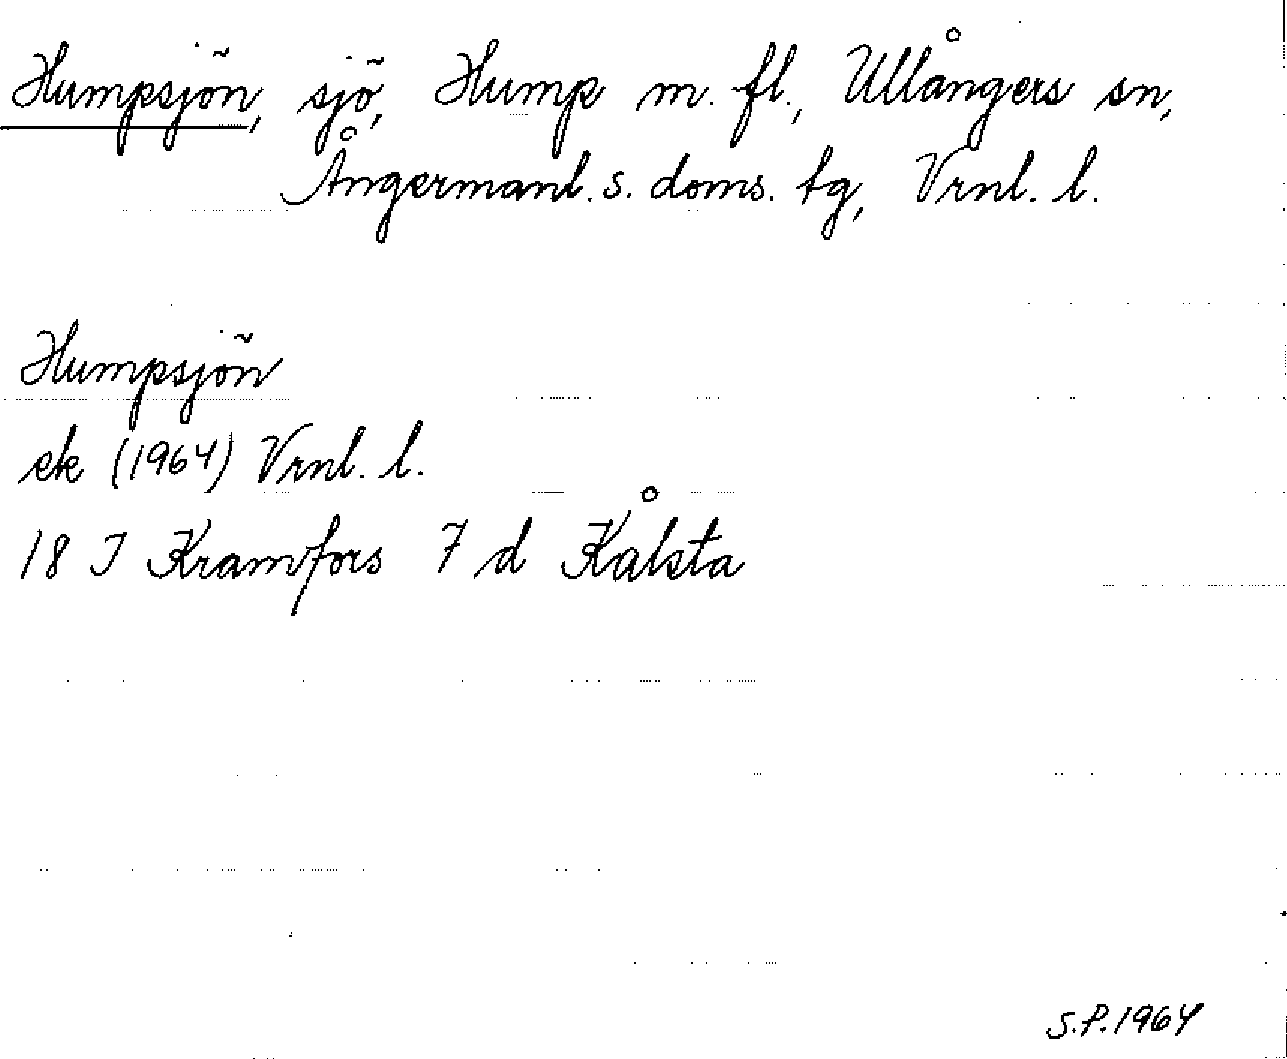 Humpsjön, sjö, Hump m. fl., Ullångers sn,
Ångermanl. s. doms. tg, Vrnl. l.
Humpsjön
ek (1964) Vrnl. l.
18 J Kramfors 7 d Kålsta
S.P. 1964